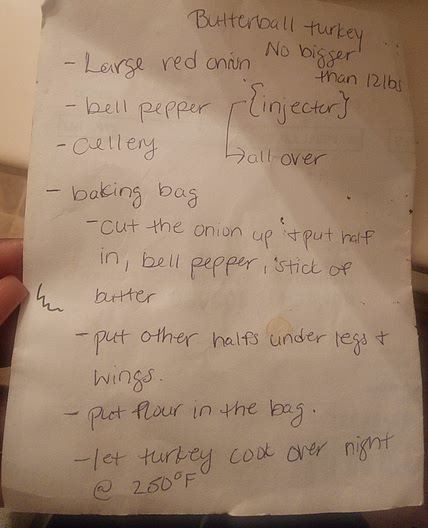 Butterball turkey
No bigger
than 12lbs
- Large red onion
- bell pepper
{injector}
- Cellery
all over
- baking bag
- cut the onion up + put half
in, bell pepper, stick of
butter
- put other halfs under legs +
wings.
- put flour in the bag.
- let turkey cook over night
@ 250°F